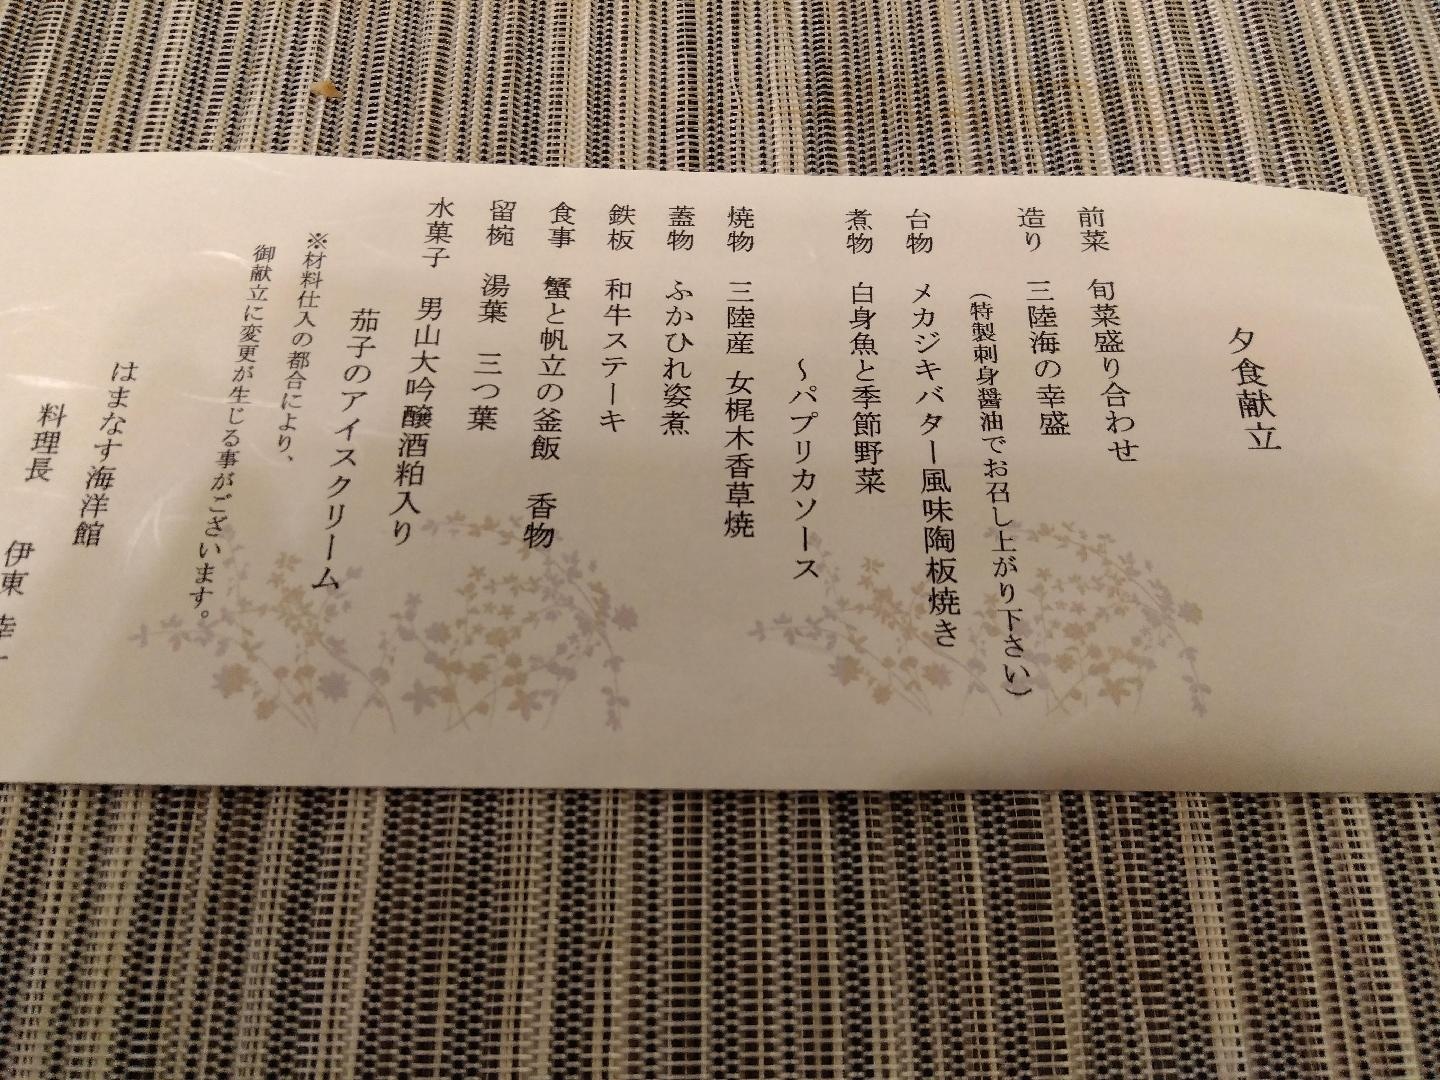 夕食献立
前菜　旬菜盛り合わせ
造り　三陸海の幸盛
（特製刺身醤油でお召し上がり下さい）
台物　メカジキバター風味陶板焼き
煮物　白身魚と季節野菜
～パプリカソース
焼物　三陸産 女梶木香草焼
蓋物　ふかひれ姿煮
鉄板　和牛ステーキ
食事　蟹と帆立の釜飯　香物
留椀　湯葉　三つ葉
水菓子　男山大吟醸酒粕入り
茄子のアイスクリーム
※材料仕入の都合により、
御献立に変更が生じる事がございます。
はまなす海洋館
料理長　伊東 幸